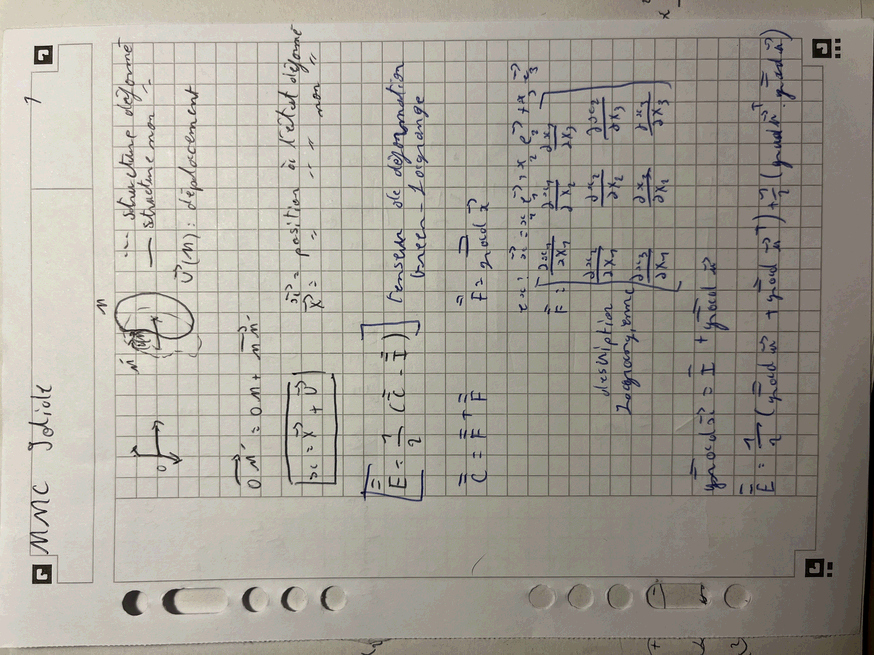 MMC Solide
1
--- structure déformé
— structure non "
U⃗(M) : déplacement
M
M'
O
x⃗ = position à l'état déformé
X⃗ = " " " non "
OM⃗' = OM + MM⃗'
x = X⃗ + U⃗
E̿ = 1/2 (C̿ - I̿) tenseur de déformation
Green-Lagrange
C̿ = F̿ᵀ F̿ F̿ = grad x⃗
ex : x⃗ = x₁ e₁⃗ + x₂ e₂⃗ + x₃ e₃⃗
F̿ = [ ∂x₁/∂X₁ ∂x₁/∂X₂ ∂x₁/∂X₃
∂x₂/∂X₁ ∂x₂/∂X₂ ∂x₂/∂X₃
∂x₃/∂X₁ ∂x₃/∂X₂ ∂x₃/∂X₃ ]
description
Lagrangienne
grad x⃗ = I̿ + grad u⃗
E̿ = 1/2 (grad u⃗ + grad u⃗ᵀ) + 1/2 (grad u⃗ᵀ . grad u⃗)